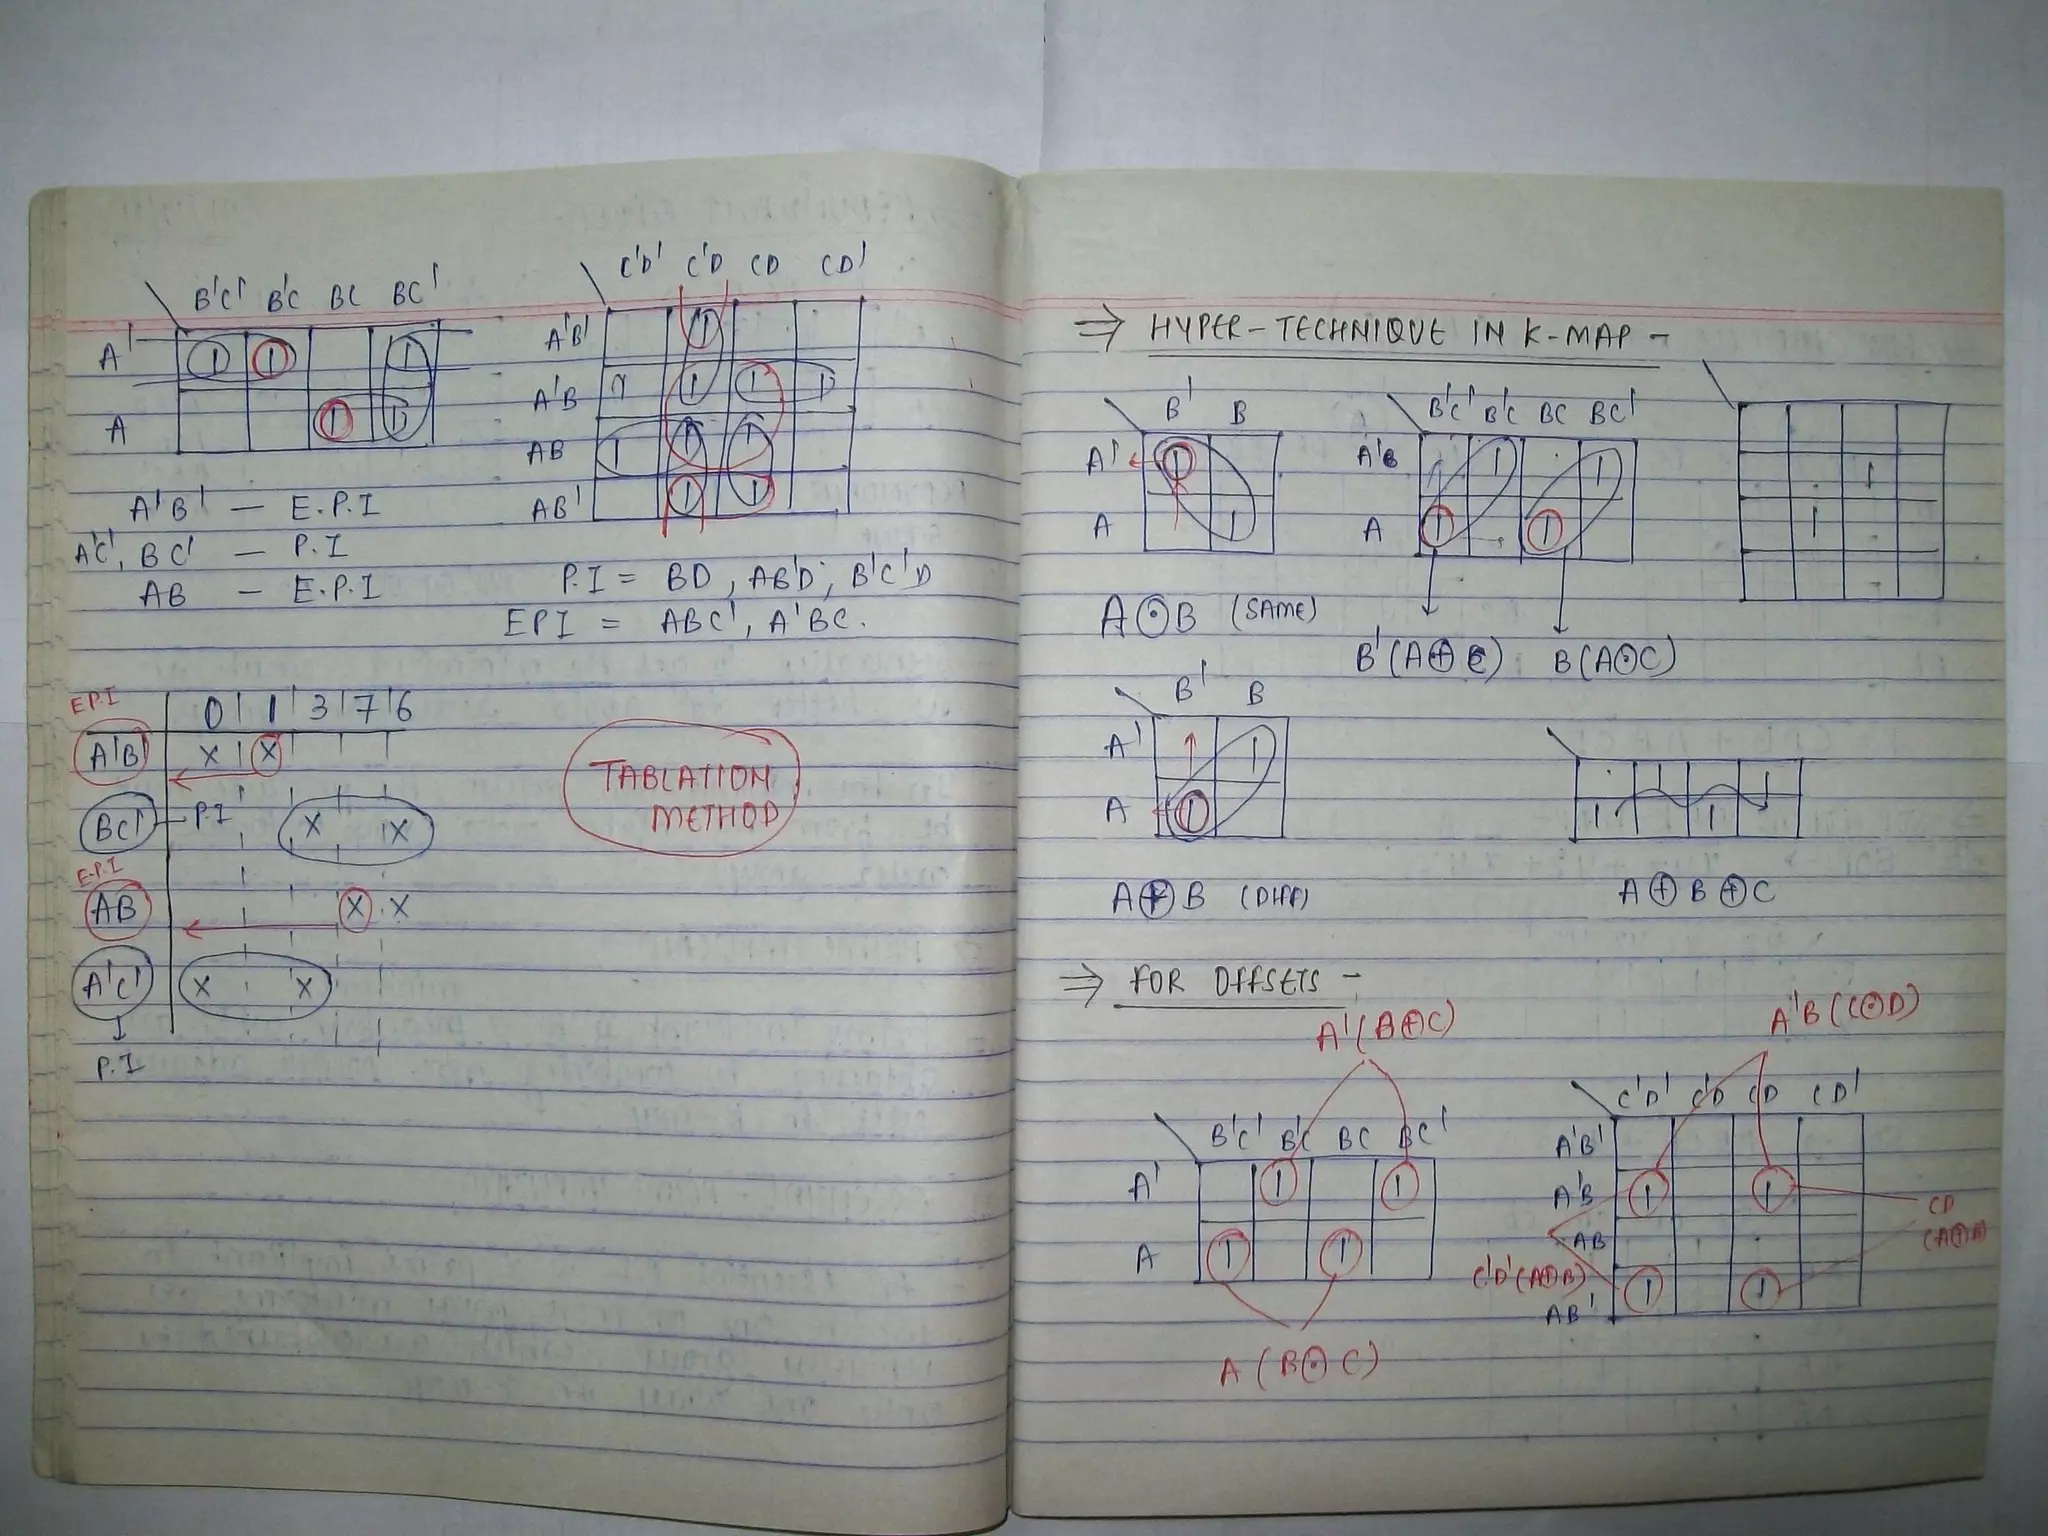 B'C' B'C BC BC'
A' 1 1 1
A 1 1
A'B' - E.P.I
A'C', BC' - P.I
AB - E.P.I
C'D' C'D CD CD'
A'B' 1
A'B 1 1 1 1
AB 1 1 1
AB' 1 1
P.I = BD, AB'D, B'C'D
EPI = ABC', A'BC.
E.P.I
0 1 3 7 6
A'B' X X
BC' P.I X X
E.P.I
AB X X
A'C' X X
P.I
TABLATION
METHOD
⇒ HYPER-TECHNIQUE IN K-MAP -
B' B
A' 1
A 1
A⊙B (SAME)
B'C' B'C BC BC'
A'B 1 1
A 1 1
B'(A⊕C) B(A⊙C)
1
1
B' B
A' 1
A 1
A⊕B (DIFF)
1 1
1 1
A⊕B⊕C
⇒ FOR OFFSETS -
A'(B⊕C)
B'C' B'C BC BC'
A' 1 1
A 1 1
A(B⊙C)
A'B(C⊙D)
C'D' C'D CD CD'
A'B'
A'B 1 1
AB
AB' 1 1
C'D'(A⊕B)
CD